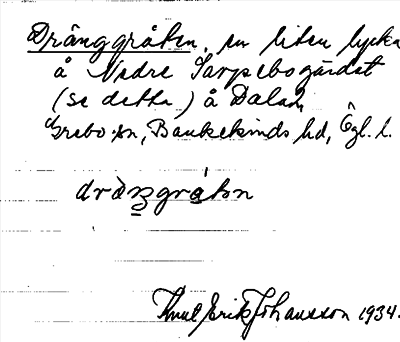 Dränggråten, en liten lycka
å Nedre Sarpebogärdet
(se detta) å Dalar,
Grebo sn, Bankekinds hd, Ögl. l.
Knut Erik Johansson 1934.